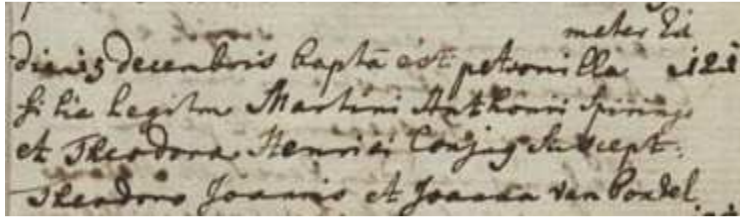 meter Ed
die 15 decembris bapta est petronilla
filia legitm Martini Anthonii
et Theodora Henrici Conjug Suscept.
Theodorus Joannis et Joanna van